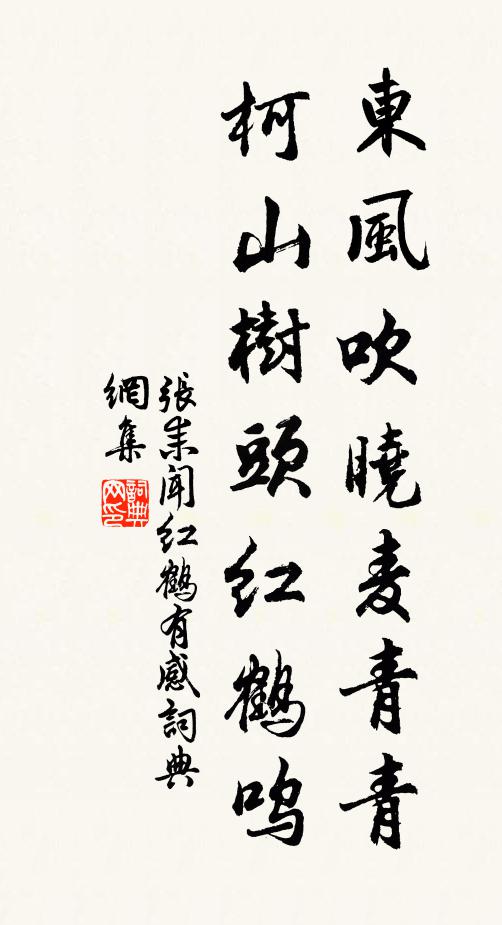 東風吹曉麦青青
柯山樹頭紅鶴鸣
張耒聞紅鶴有感詞典
網集
詞典
网印